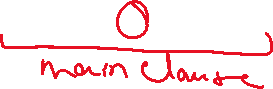 O
main clause